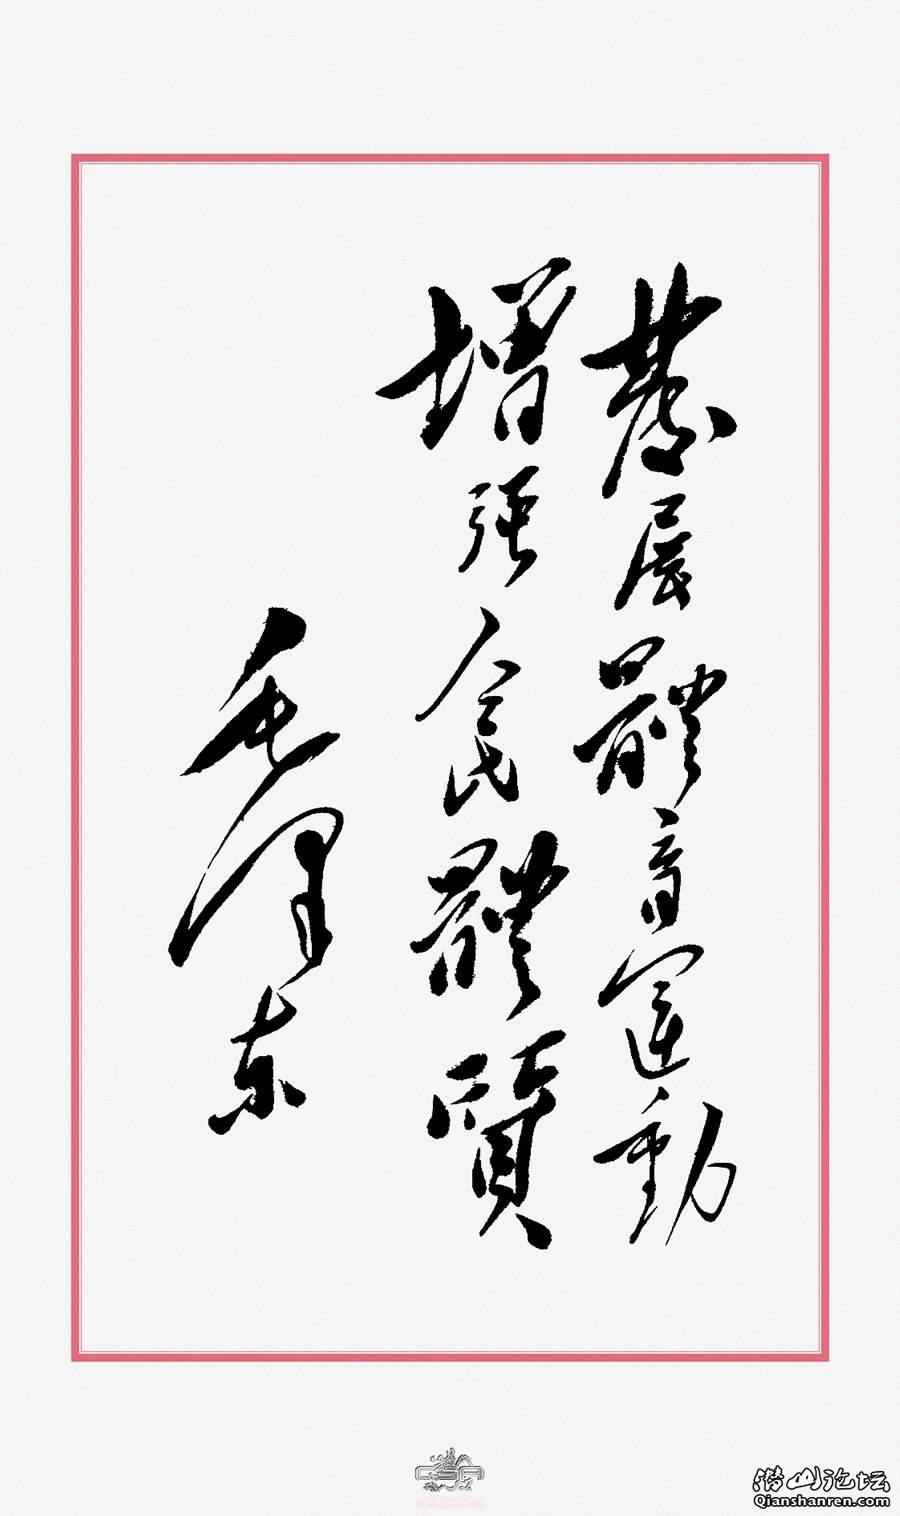 發展體育運動
增强人民體質
毛澤东
潜山论坛
Qianshanren.com